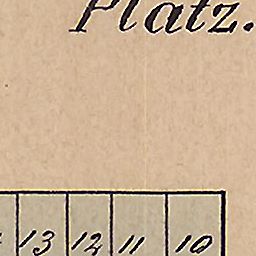 Platz.
13 12 11 10